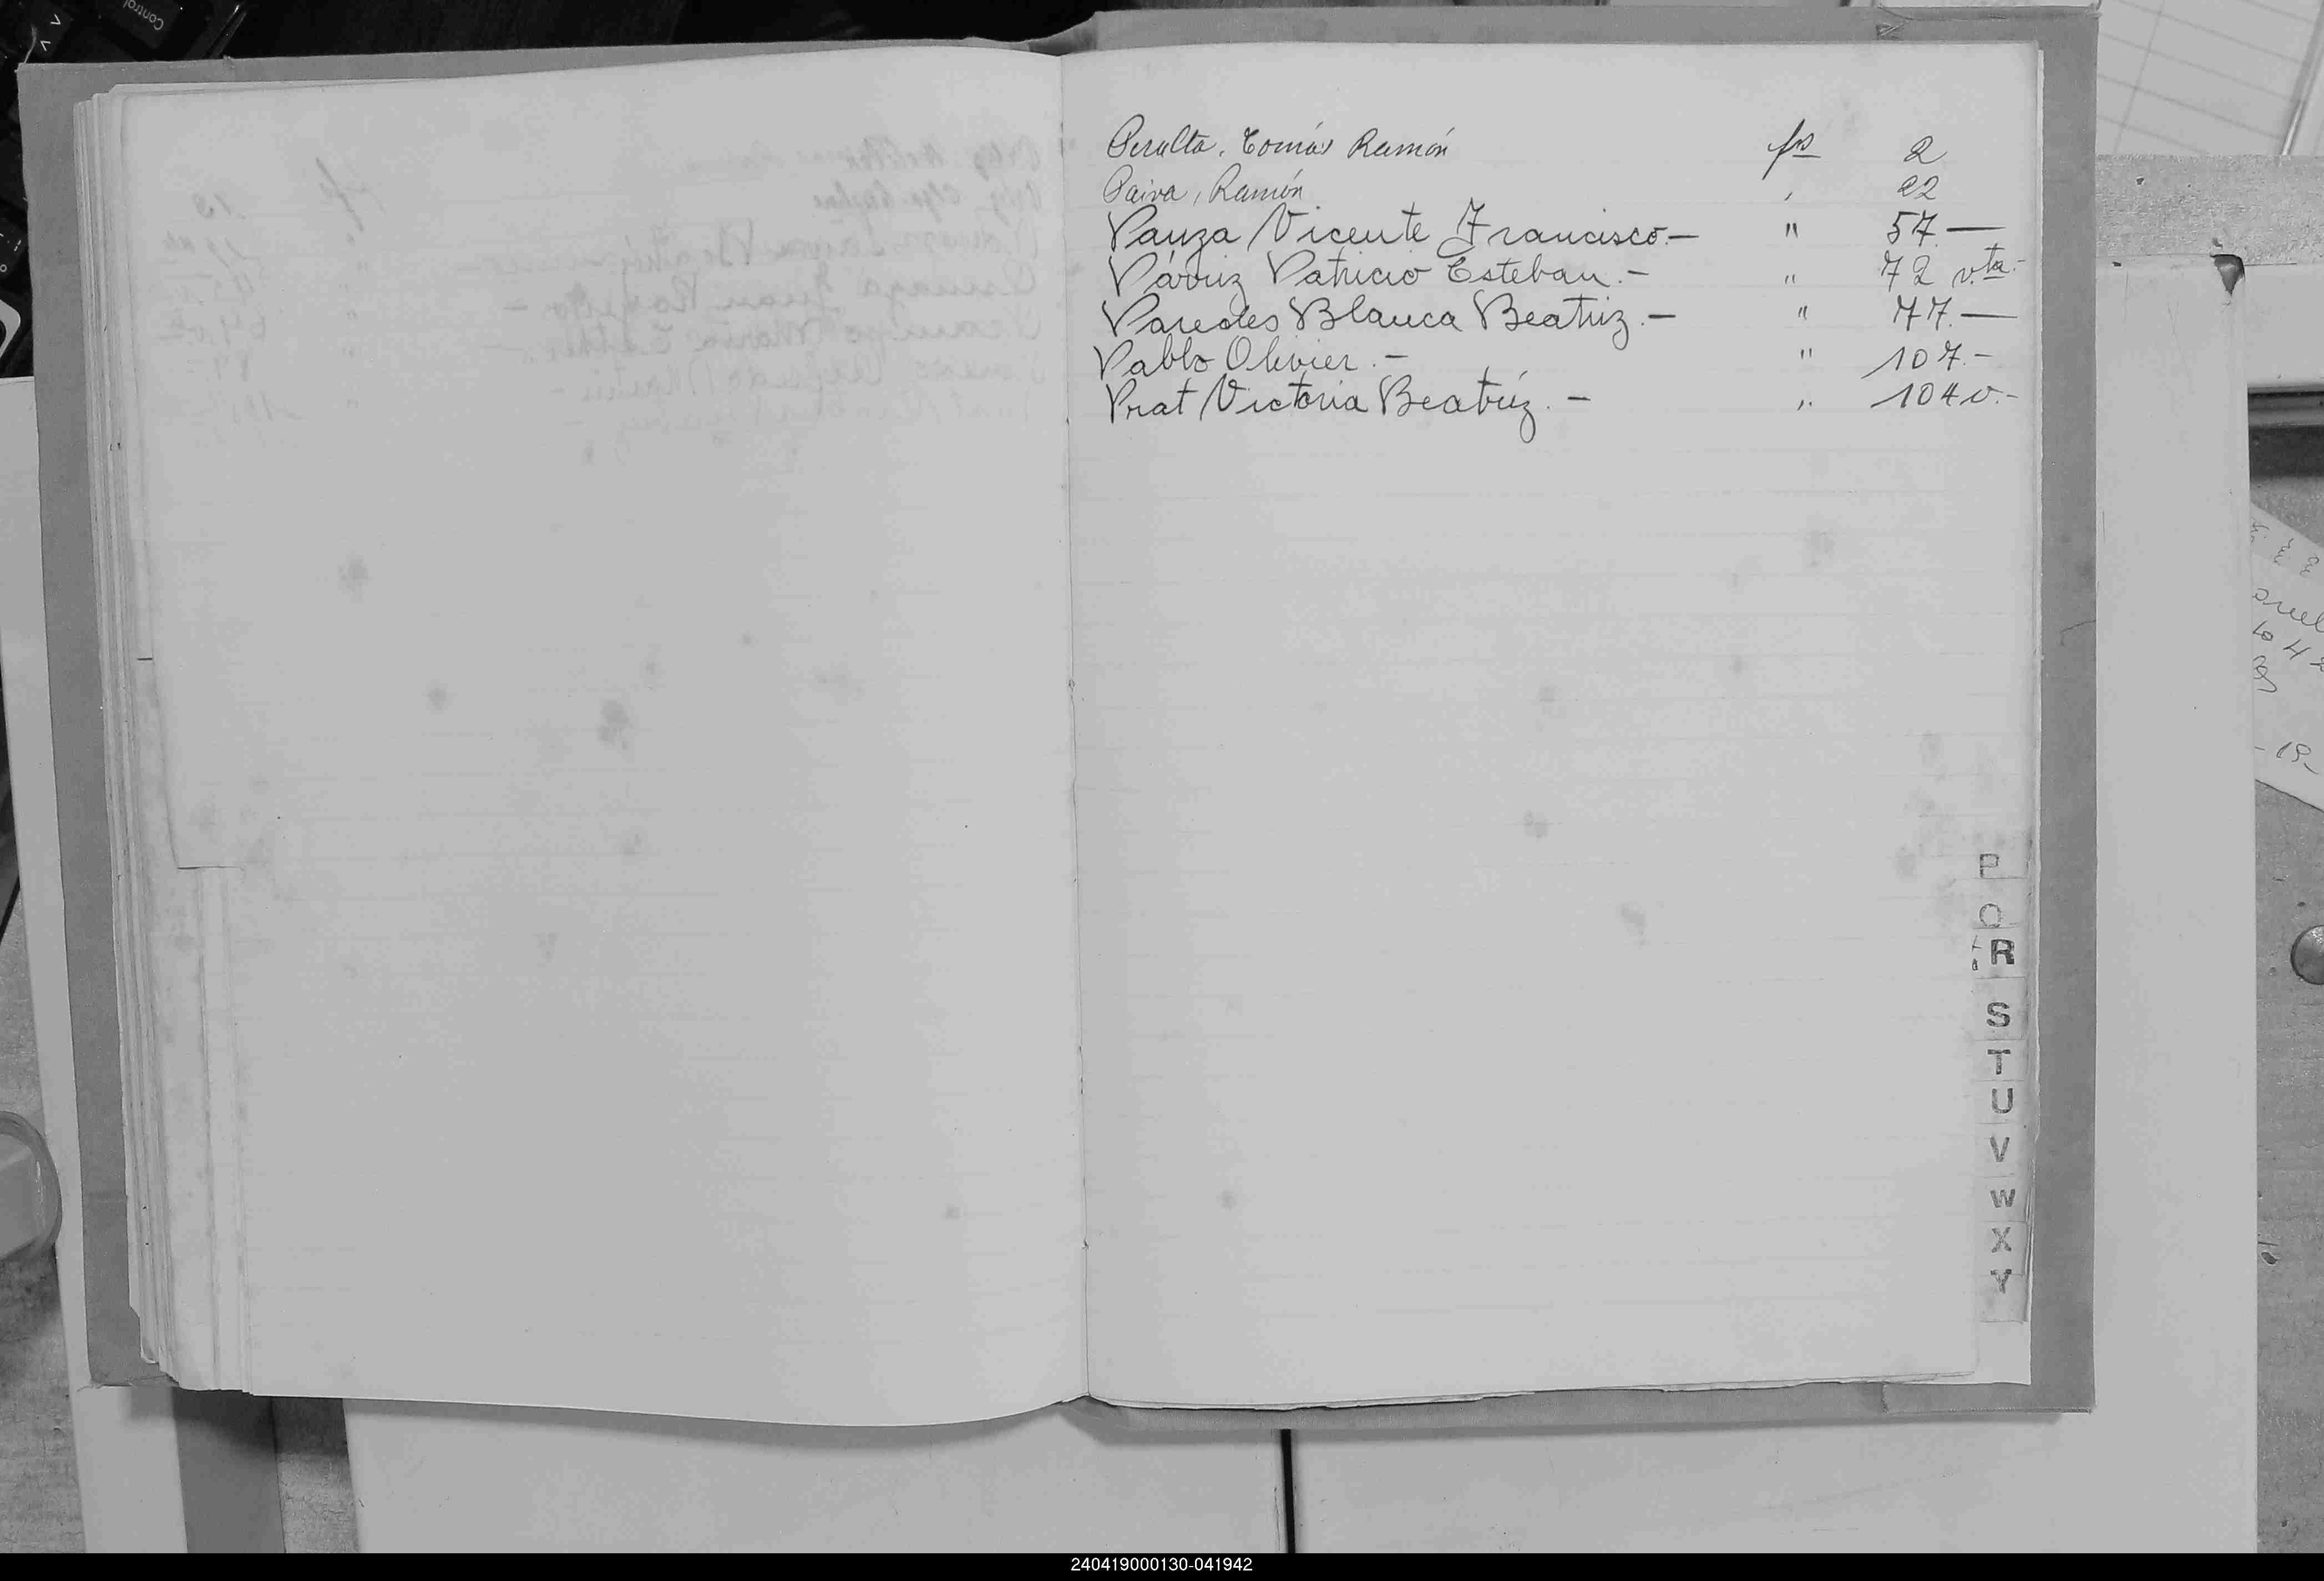 Peralta, Tomás Ramón fs 2
Paiva, Ramón , 22
Panza Vicente Francisco.— " 57.—
Párriz Patricio Esteban.— " 72 vta.-
Paredes Blanca Beatriz.— " 77.—
Pablo Olivier.— " 107.-
Prat Victoria Beatríz.— " 104v.-
P
Q
R
S
T
U
V
W
X
Y
Control
240419000130-041942